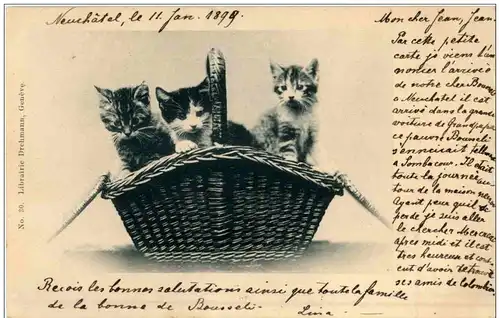 Neuchâtel, le 11. Jan. 1899
Mon cher Jean, Jean
Par cette petite
carte je viens t'an
noncer l'arrivée
de notre cher
à Neuchâtel il est
arrivé dans la grande
voiture de Grandpapa
ce pauvre Bousseli
s'ennuyait
à Sombacour. Il était
toute la journée
tour de la maison
Ayant peur qu'il se
perde je suis aller
le chercher Mercredi
après midi et il est
très heureux et
cent d'avoir retrouvé
ses amis de Colombier
No. 30. Librairie Drehmann, Genève
Reçois les bonnes salutations ainsi que toute la famille
de la bonne de Bousseli.
Lina